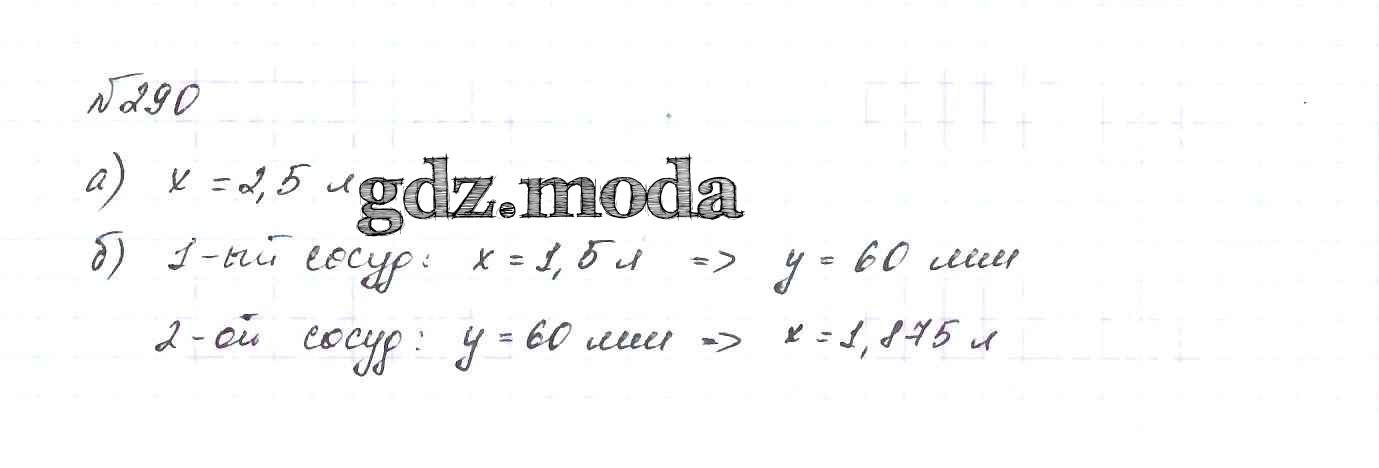 №290
а) x = 2,5 л
gdz.moda
б) 1-ый сосуд: x = 1,5 л => y = 60 мин
2-ой сосуд: y = 60 мин => x = 1,875 л